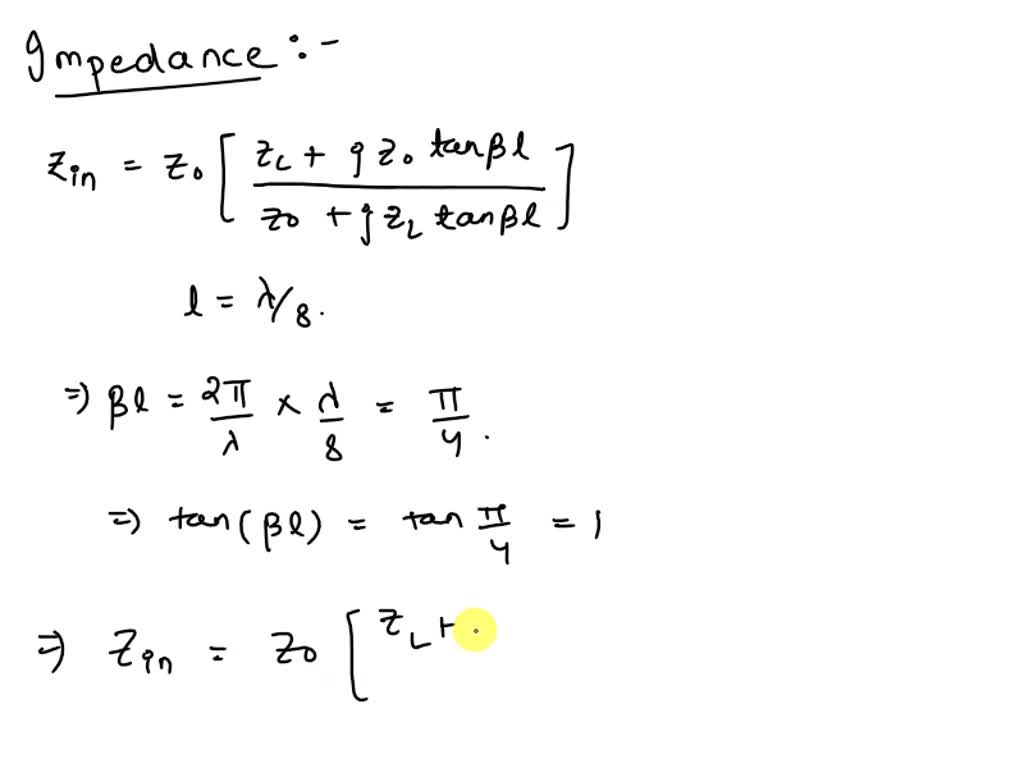 Impedance :-
Zin = Z0 [ (ZL + j Z0 tan βl) / (Z0 + j ZL tan βl) ]
l = λ/8.
⇒ βl = 2π/λ × λ/8 = π/4.
⇒ tan(βl) = tan π/4 = 1
⇒ Zin = Z0 [ ZL +